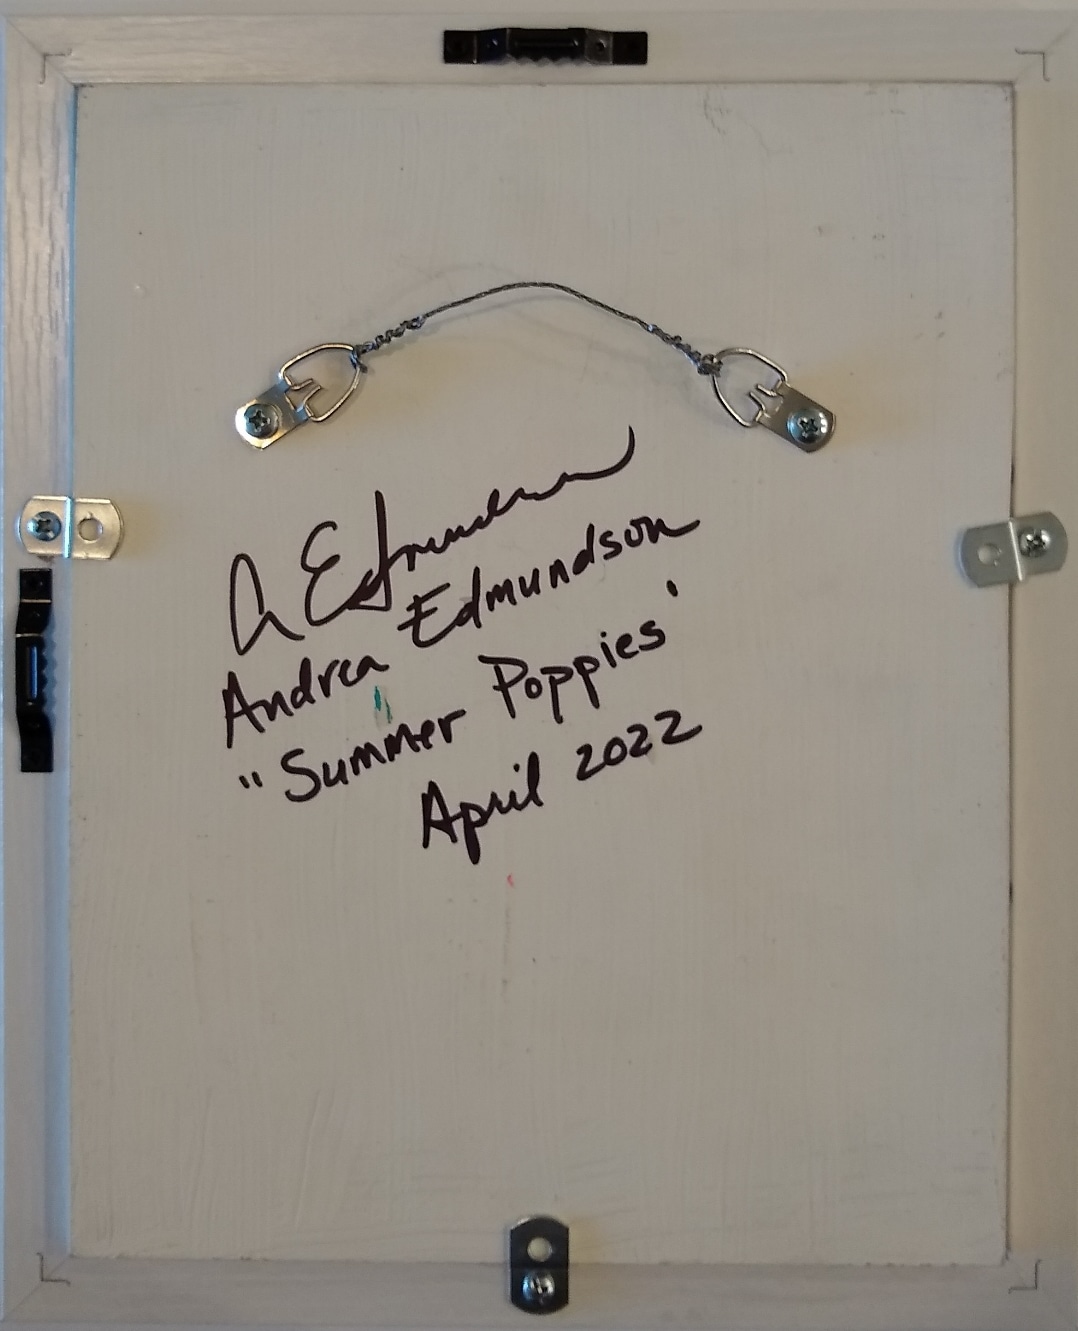 A Edmundson
Andrea Edmundson
"Summer Poppies'
April 2022